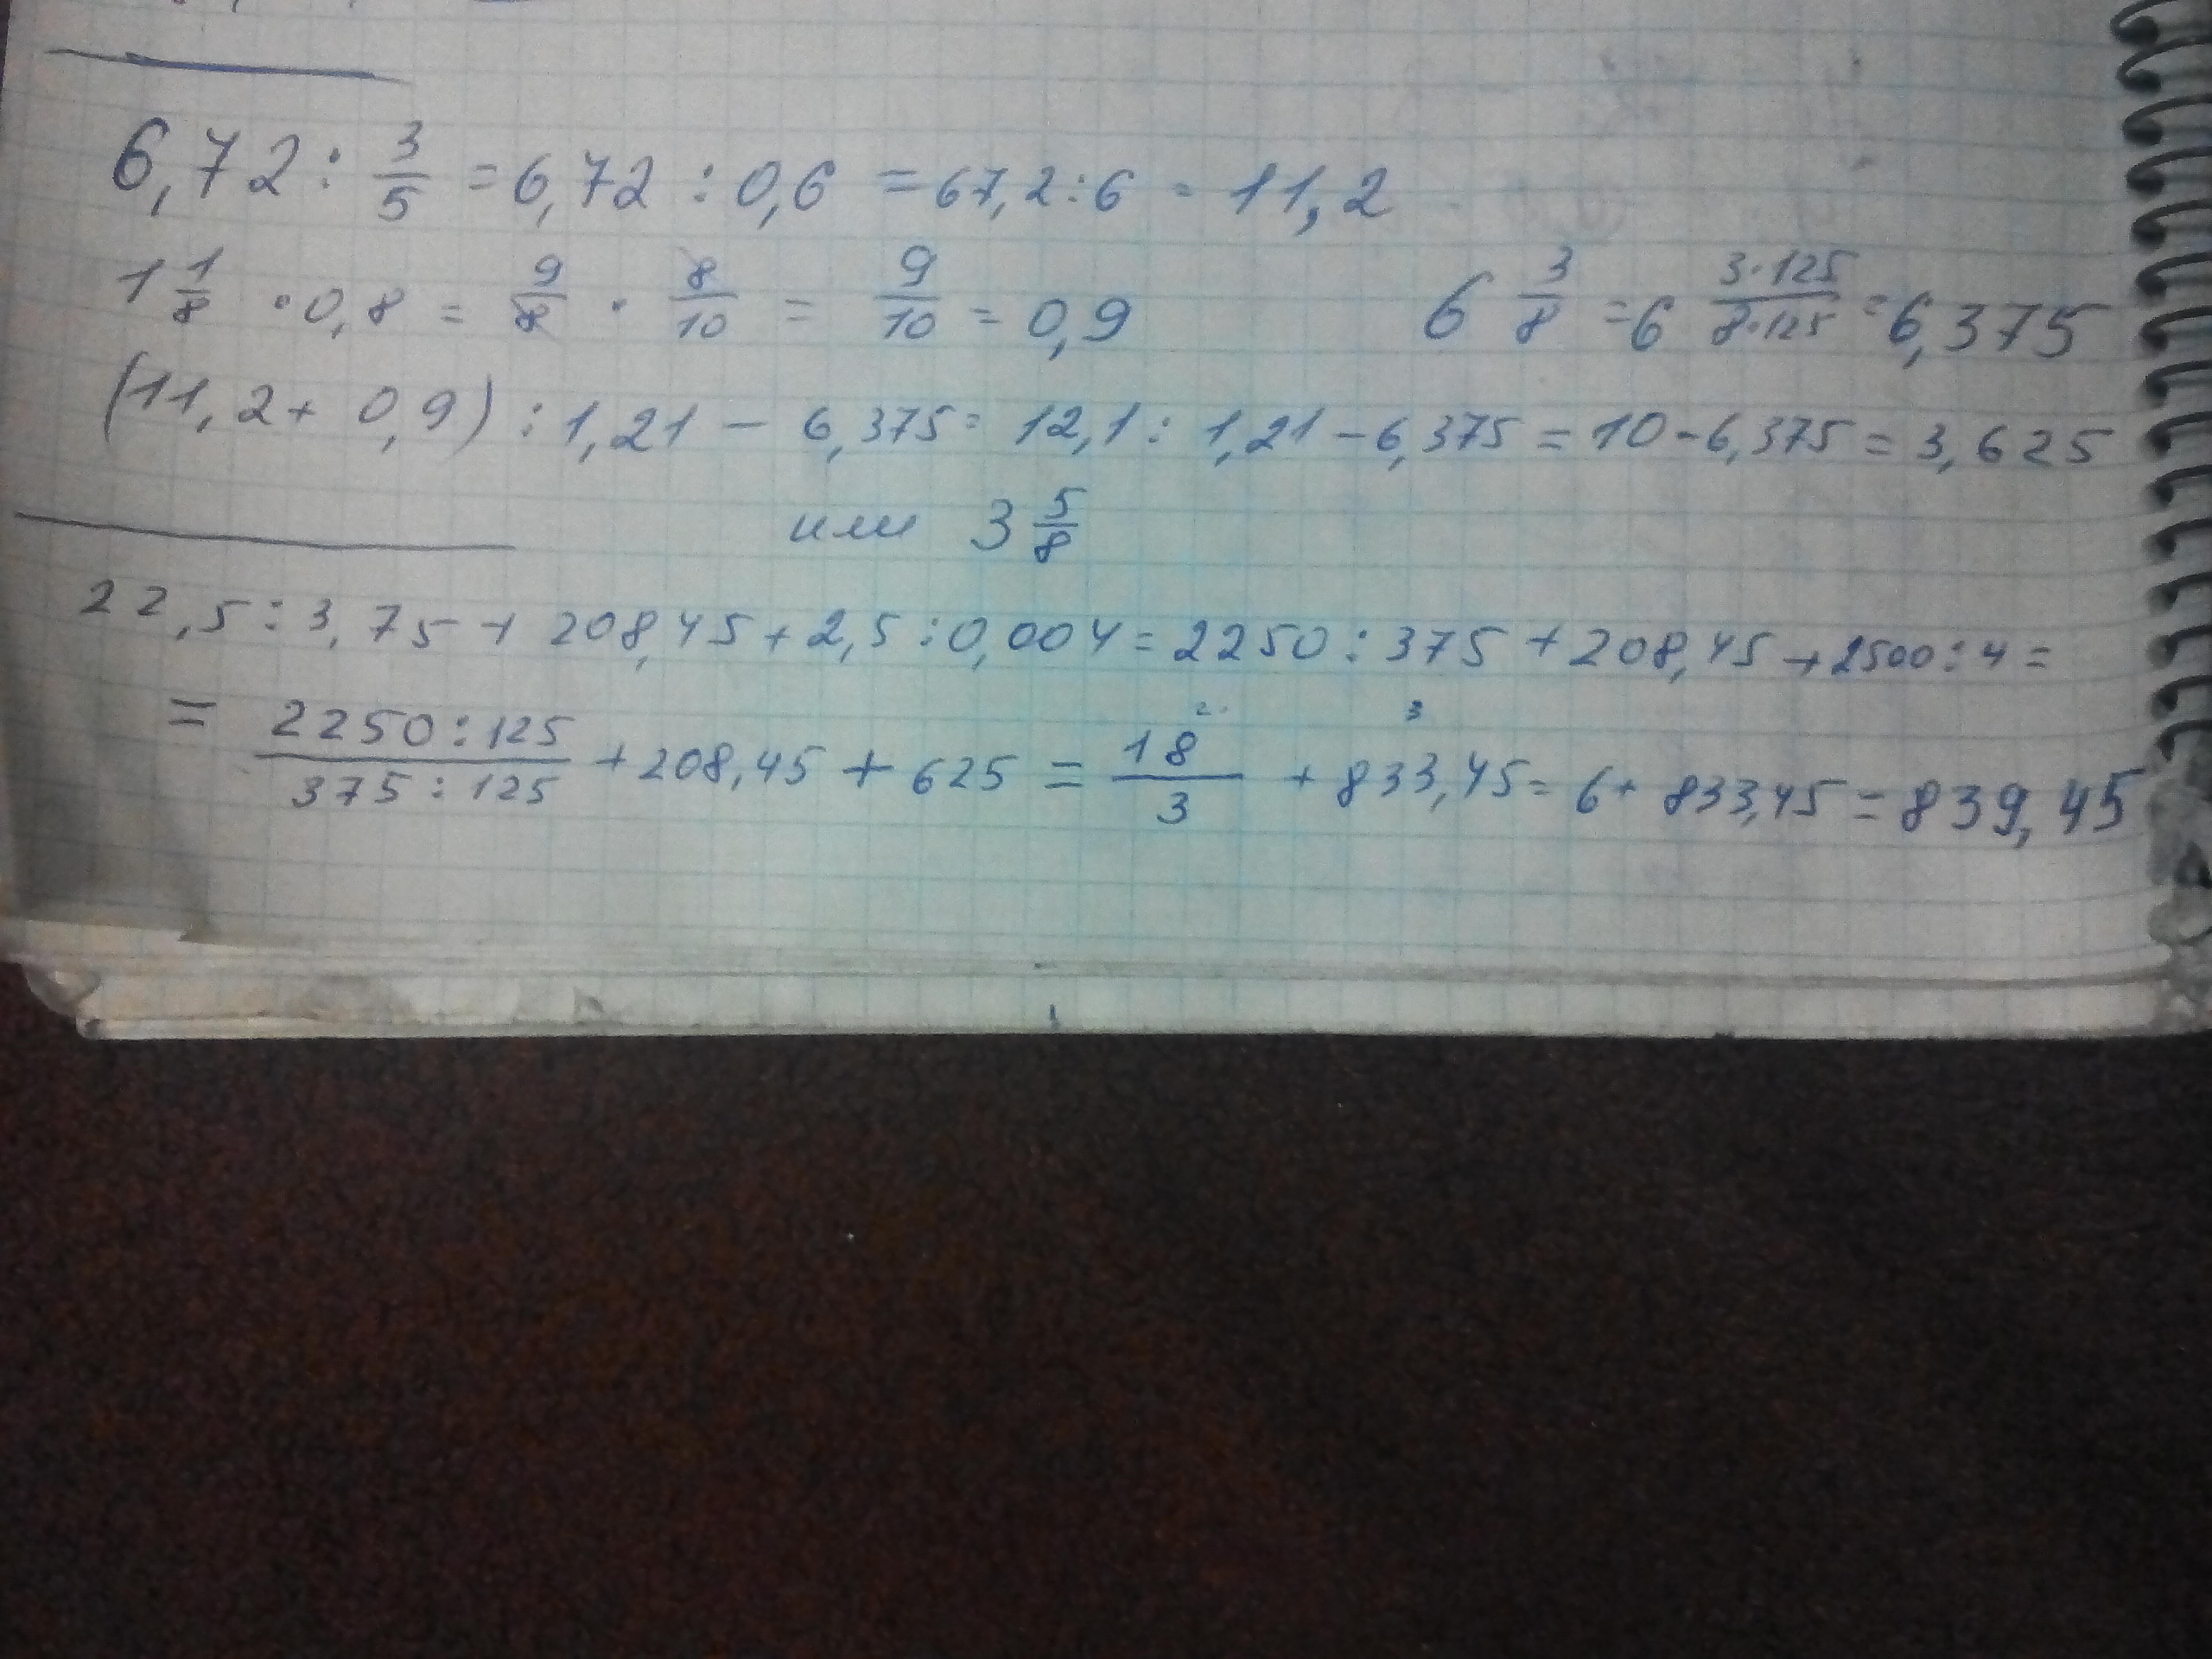 6,72 : 3/5 = 6,72 : 0,6 = 67,2 : 6 = 11,2
1 1/8 · 0,8 = 9/8 · 8/10 = 9/10 = 0,9 6 3/8 = 6 3·125/8·125 = 6,375
(11,2 + 0,9) : 1,21 - 6,375 = 12,1 : 1,21 - 6,375 = 10 - 6,375 = 3,625
или 3 5/8
22,5 : 3,75 + 208,45 + 2,5 : 0,004 = 2250 : 375 + 208,45 + 2500 : 4 =
= 2250 : 125/375 : 125 + 208,45 + 625 = 18/3 + 833,45 = 6 + 833,45 = 839,45